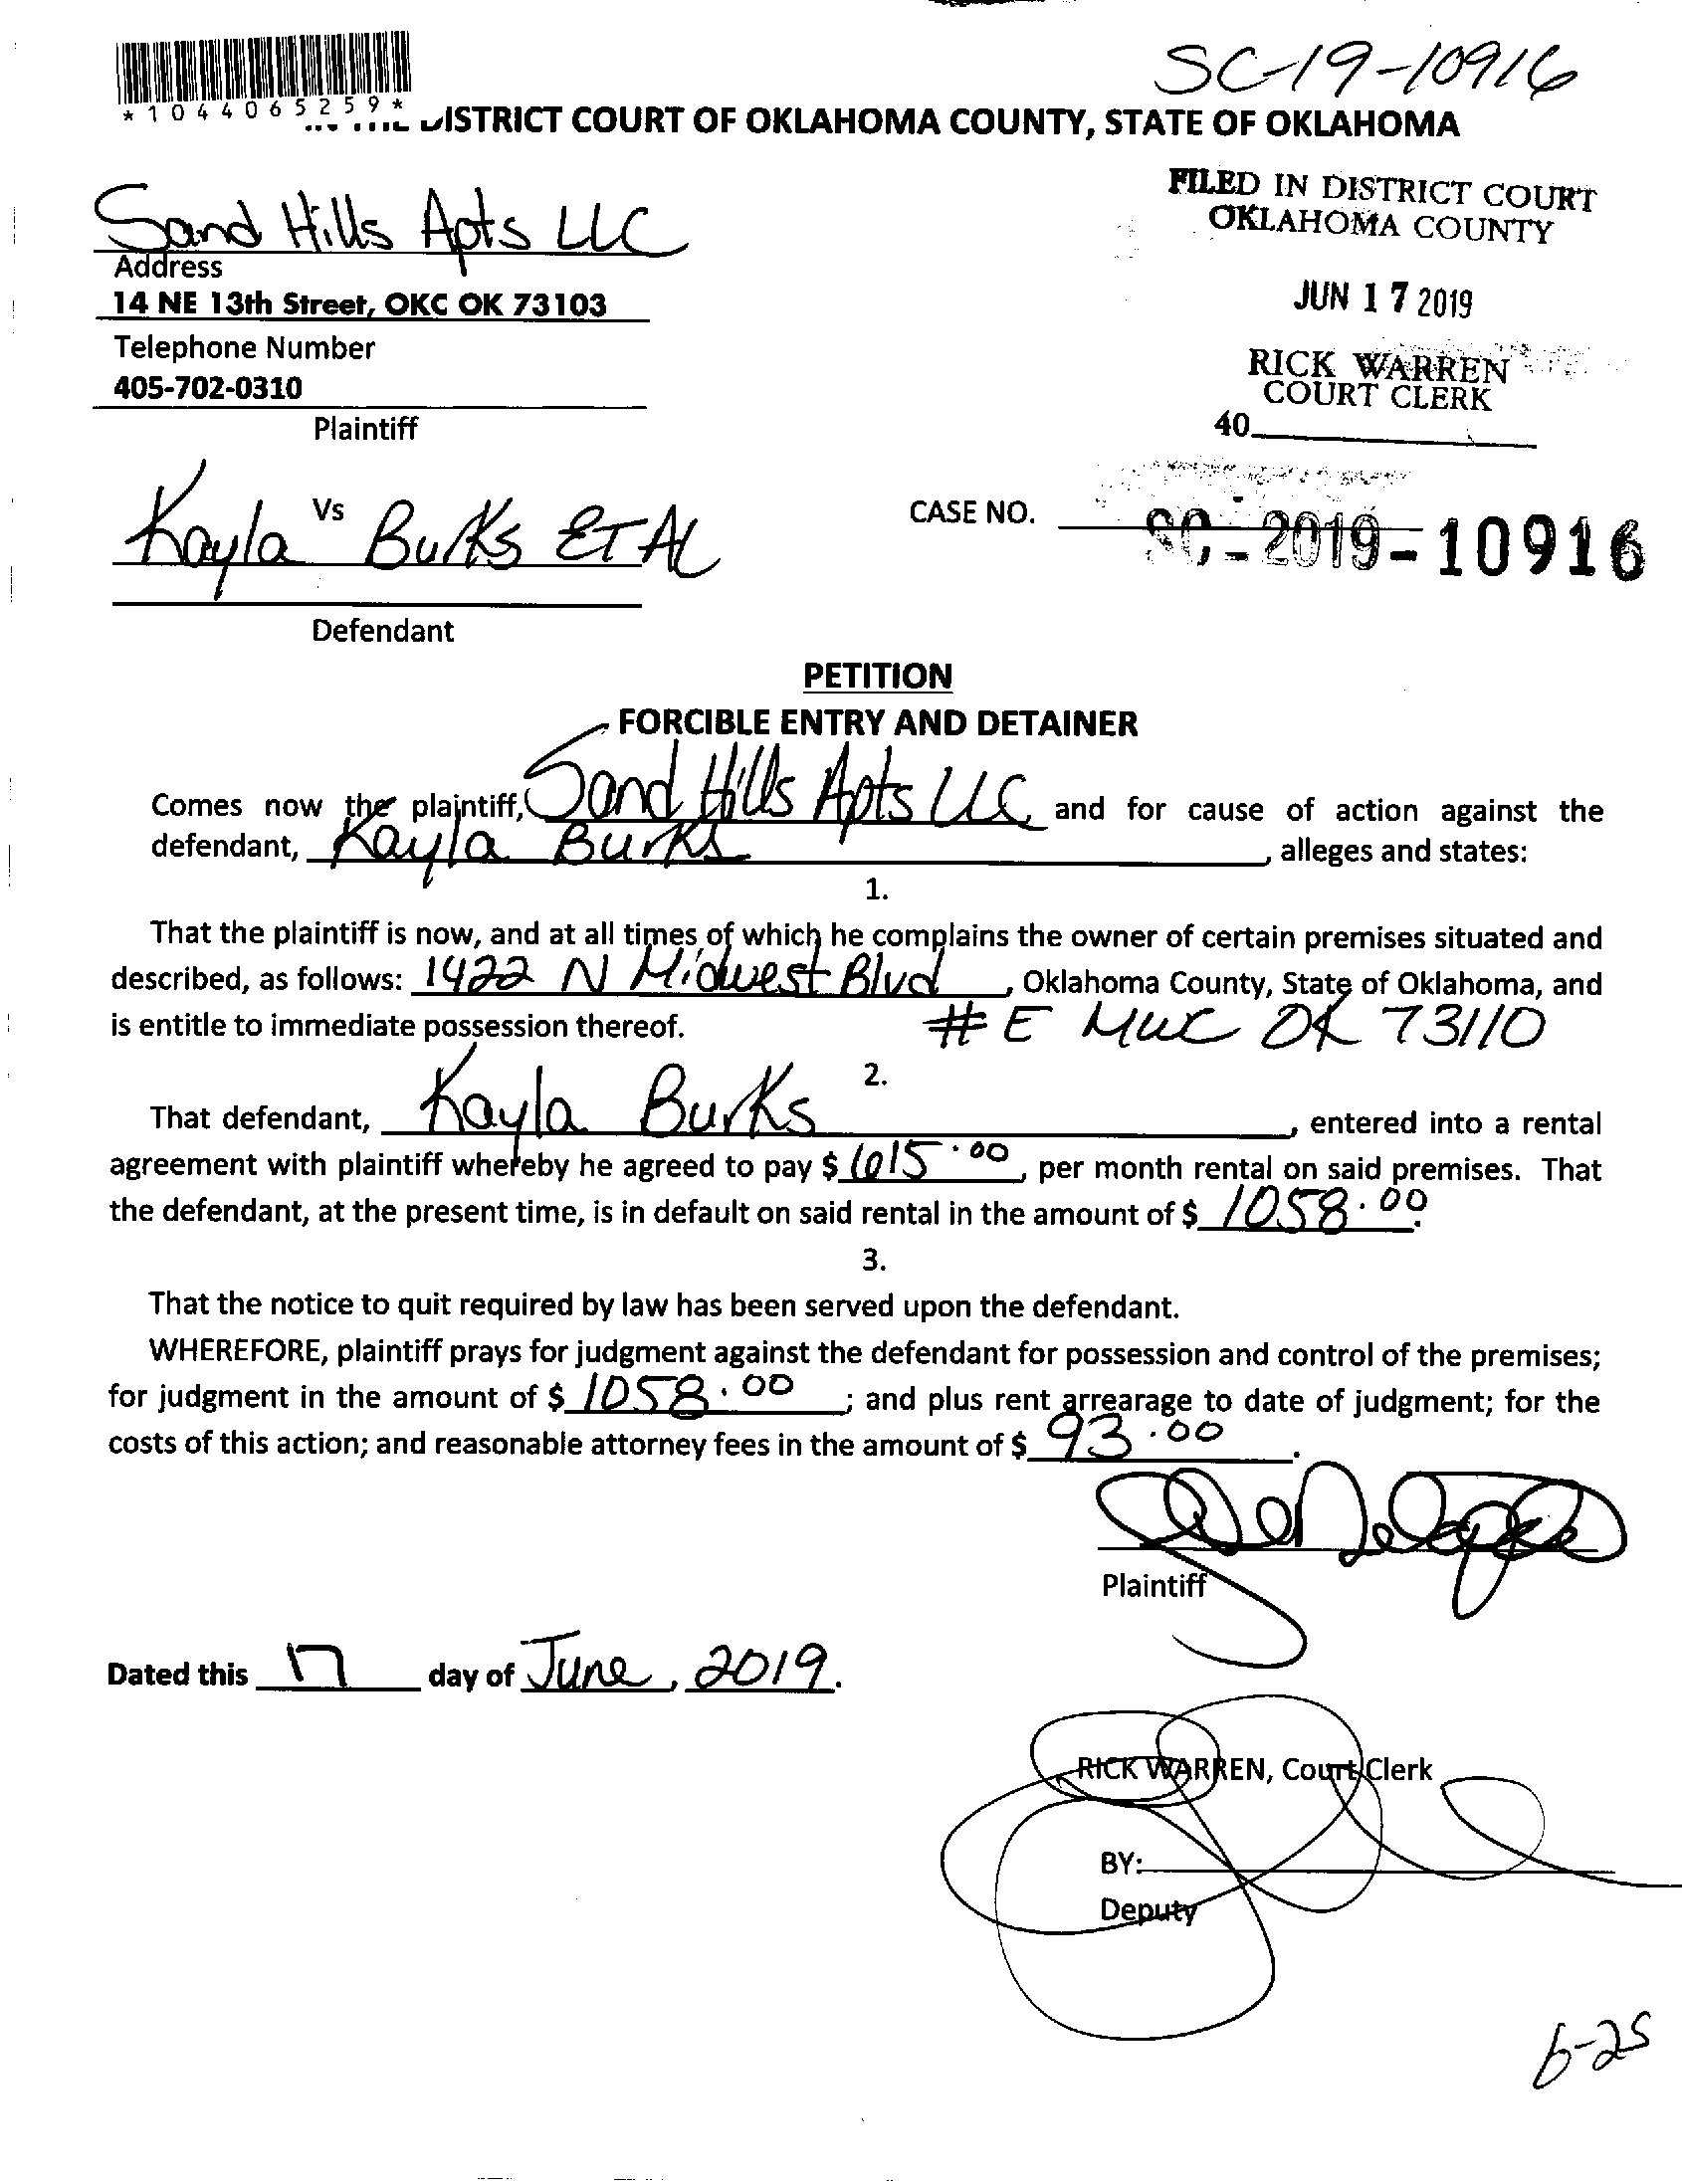 SC-19-10916
*1044065259*
DISTRICT COURT OF OKLAHOMA COUNTY, STATE OF OKLAHOMA
FILED IN DISTRICT COURT
OKLAHOMA COUNTY
Sand Hills Apts LLC
Address
14 NE 13th Street, OKC OK 73103
JUN 17 2019
Telephone Number
405-702-0310
RICK WARREN
COURT CLERK
Plaintiff
40
Vs
Kayla Burks ET AL
CASE NO. SC-2019-10916
Defendant
PETITION
FORCIBLE ENTRY AND DETAINER
Comes now the plaintiff, Sand Hills Apts LLC and for cause of action against the
defendant, Kayla Burks, alleges and states:
1.
That the plaintiff is now, and at all times of which he complains the owner of certain premises situated and
described, as follows: 1422 N Midwest Blvd, Oklahoma County, State of Oklahoma, and
is entitle to immediate possession thereof. #E MWC OK 73110
2.
That defendant, Kayla Burks, entered into a rental
agreement with plaintiff whereby he agreed to pay $ 615.00, per month rental on said premises. That
the defendant, at the present time, is in default on said rental in the amount of $ 1058.00.
3.
That the notice to quit required by law has been served upon the defendant.
WHEREFORE, plaintiff prays for judgment against the defendant for possession and control of the premises;
for judgment in the amount of $ 1058.00; and plus rent arrearage to date of judgment; for the
costs of this action; and reasonable attorney fees in the amount of $ 93.00.
Plaintiff
Dated this 17 day of June, 2019.
RICK WARREN, Court Clerk
BY:
Deputy
6-25